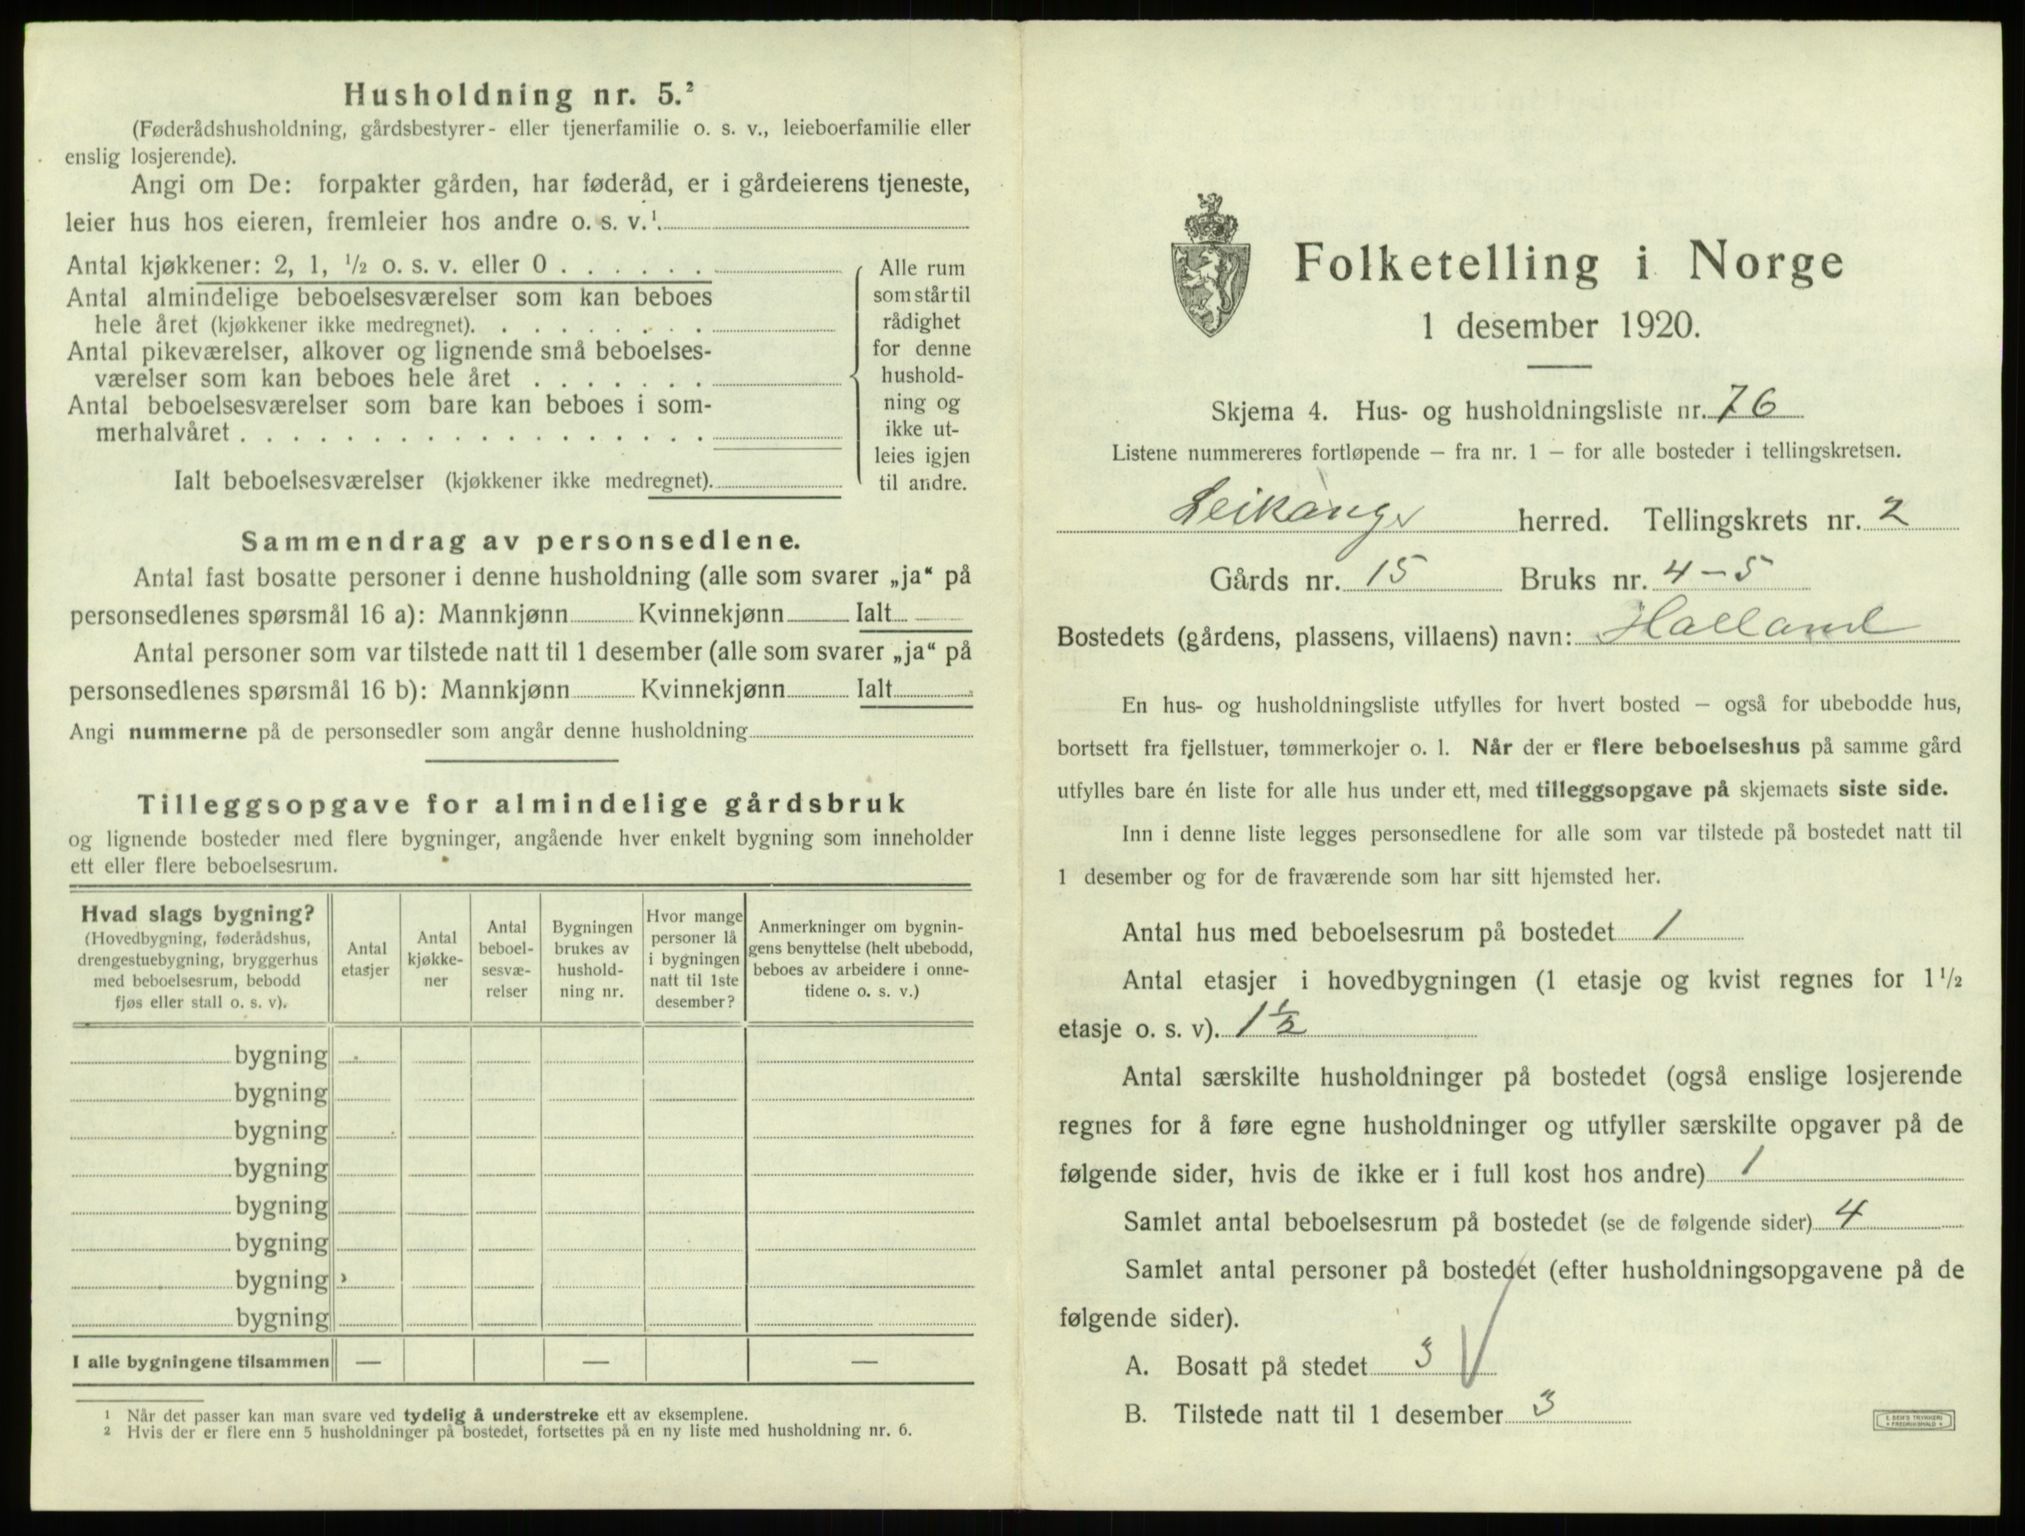 Husholdning nr. 5.²
(Føderådshusholdning, gårdsbestyrer- eller tjenerfamilie o. s. v., leieboerfamilie eller
enslig losjerende).
Angi om De: forpakter gården, har føderåd, er i gårdeierens tjeneste,
leier hus hos eieren, fremleier hos andre o. s. v.¹
Antal kjøkkener: 2, 1, ½ o. s. v. eller 0
Antal almindelige beboelsesværelser som kan beboes
hele året (kjøkkener ikke medregnet)
Antal pikeværelser, alkover og lignende små beboelses-
værelser som kan beboes hele året
Antal beboelsesværelser som bare kan beboes i som-
merhalvåret
Ialt beboelsesværelser (kjøkkener ikke medregnet)
Alle rum
som står til
rådighet
for denne
hushold-
ning og
ikke ut-
leies igjen
til andre.
Sammendrag av personsedlene.
Antal fast bosatte personer i denne husholdning (alle som svarer „ja“ på
personsedlenes spørsmål 16 a): Mannkjønn Kvinnekjønn Ialt
Antal personer som var tilstede natt til 1 desember (alle som svarer „ja“ på
personsedlenes spørsmål 16 b): Mannkjønn Kvinnekjønn Ialt
Angi nummerne på de personsedler som angår denne husholdning
Tilleggsopgave for almindelige gårdsbruk
og lignende bosteder med flere bygninger, angående hver enkelt bygning som inneholder
ett eller flere beboelsesrum.
Hvad slags bygning?
(Hovedbygning, føderådshus,
drengestuebygning, bryggerhus
med beboelsesrum, bebodd
fjøs eller stall o. s. v).
Antal
etasjer
Antal
kjøkke-
ner
Antal
beboel-
sesvæ-
relser
Bygningen
brukes av
hushold-
ning nr.
Hvor mange
personer lå
i bygningen
natt til 1ste
desember?
Anmerkninger om bygnin-
gens benyttelse (helt ubebodd,
beboes av arbeidere i onne-
tidene o. s. v.)
bygning
bygning
bygning
bygning
bygning
bygning
bygning
bygning
I alle bygningene tilsammen — — —
¹ Når det passer kan man svare ved tydelig å understreke ett av eksemplene.
² Hvis der er flere enn 5 husholdninger på bostedet, fortsettes på en ny liste med husholdning nr. 6.
Folketelling i Norge
1 desember 1920.
Skjema 4. Hus- og husholdningsliste nr. 76
Listene nummereres fortløpende — fra nr. 1 — for alle bosteder i tellingskretsen.
Leikanger herred. Tellingskrets nr. 2
Gårds nr. 15 Bruks nr. 4-5
Bostedets (gårdens, plassens, villaens) navn: Halland
En hus- og husholdningsliste utfylles for hvert bosted — også for ubebodde hus,
bortsett fra fjellstuer, tømmerkojer o. l. Når der er flere beboelseshus på samme gård
utfylles bare én liste for alle hus under ett, med tilleggsopgave på skjemaets siste side.
Inn i denne liste legges personsedlene for alle som var tilstede på bostedet natt til
1 desember og for de fraværende som har sitt hjemsted her.
Antal hus med beboelsesrum på bostedet 1
Antal etasjer i hovedbygningen (1 etasje og kvist regnes for 1½
etasje o. s. v). 1½
Antal særskilte husholdninger på bostedet (også enslige losjerende
regnes for å føre egne husholdninger og utfyller særskilte opgaver på de
følgende sider, hvis de ikke er i full kost hos andre) 1
Samlet antal beboelsesrum på bostedet (se de følgende sider) 4
Samlet antal personer på bostedet (efter husholdningsopgavene på de
følgende sider).
A. Bosatt på stedet 3
B. Tilstede natt til 1 desember 3
E. SEM'S TRYKKERI
FREDRIKSHALD